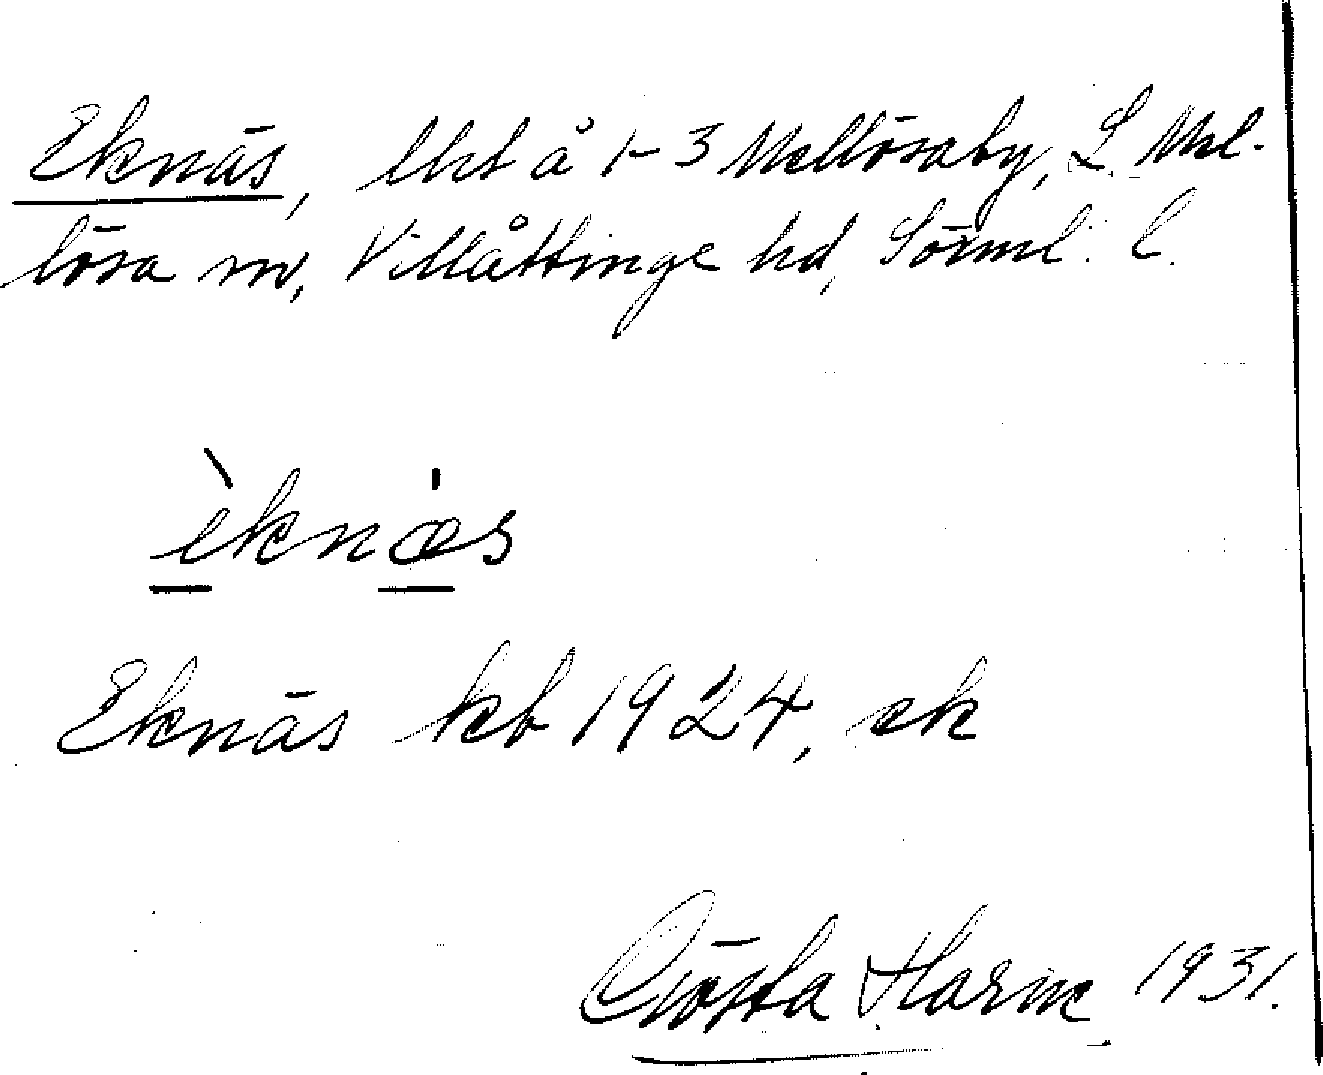 Eknäs, lht å 1-3 Mellösaby, L. Mel-
lösa sn, Villåttinge hd, Sörml. l.
èknæ̍s
Eknäs kb 1924, ek
Gösta Harm 1931.